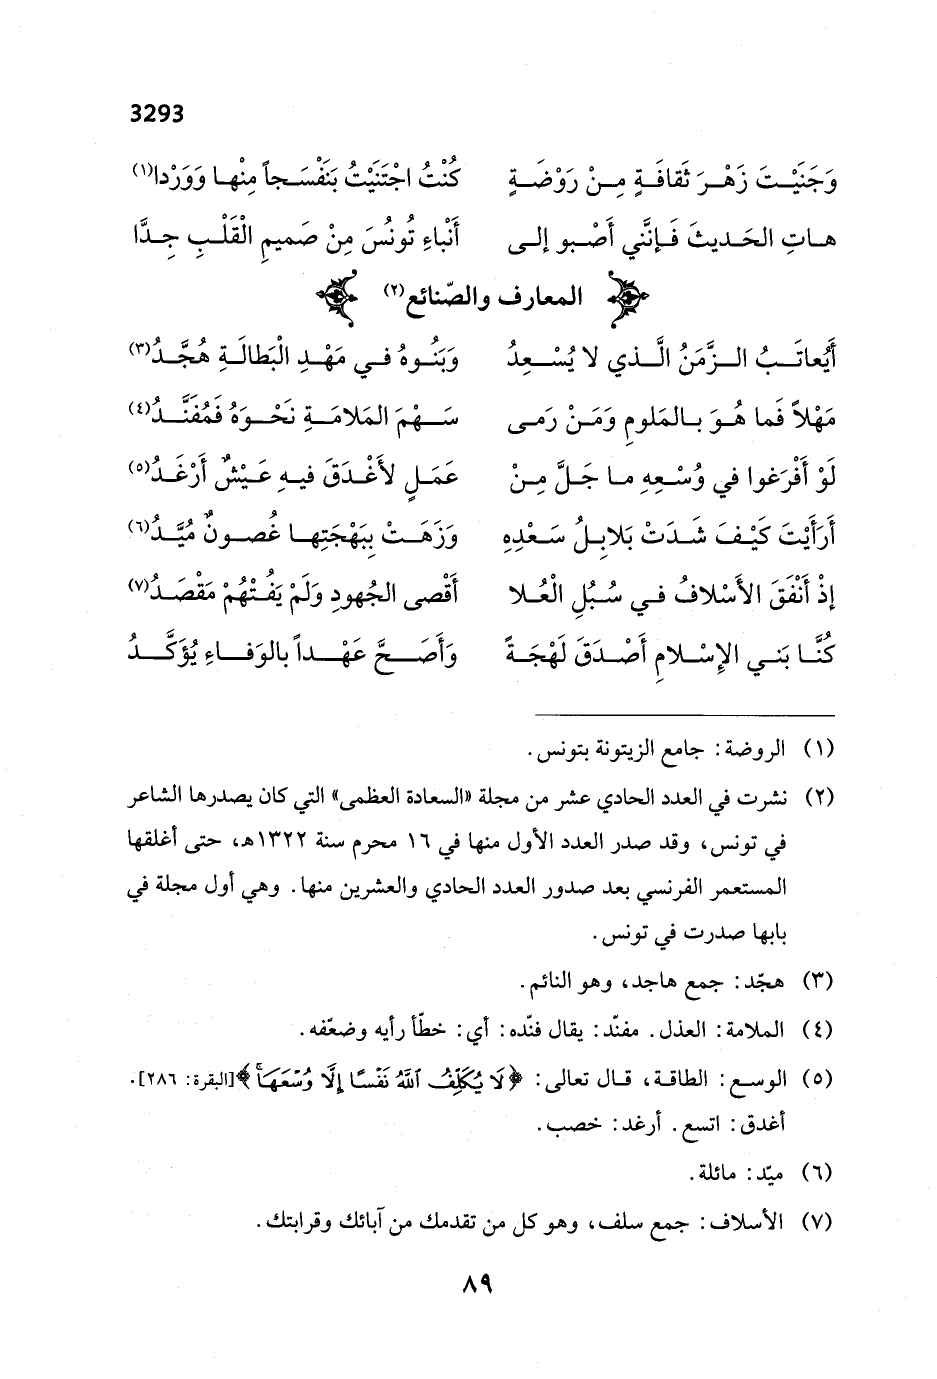 3293
وَجَنَيْتَ زَهْرَ ثَقافَةٍ مِنْ رَوْضَةٍ كُنْتُ اجْتَنَيْتُ بَنَفْسَجاً مِنْها وَوَرْدا(١)
هاتِ الحَديثَ فَإِنَّني أَصْبو إِلى أَنْباءِ تُونُسَ مِنْ صَميمِ الْقَلْبِ جِدَّا
المعارف والصّنائع(٢)
أَيُعاتَبُ الزَّمَنُ الَّذي لا يُسْعِدُ وَبَنُوهُ في مَهْدِ الْبَطالَةِ هُجَّدُ(٣)
مَهْلاً فَما هُوَ بالمَلومِ وَمَنْ رَمى سَهْمَ المَلامَةِ نَحْوَهُ فَمُفَنَّدُ(٤)
لَوْ أَفْرَغوا في وُسْعِهِ ما جَلَّ مِنْ عَمَلٍ لأَغْدَقَ فيهِ عَيْشٌ أَرْغَدُ(٥)
أَرَأَيْتَ كَيْفَ شَدَتْ بَلابِلُ سَعْدِهِ وَزَهَتْ بِبَهْجَتِها غُصونٌ مُيَّدُ(٦)
إِذْ أَنْفَقَ الأَسْلافُ في سُبُلِ الْعُلا أَقْصى الجُهودِ وَلَمْ يَفُتْهُمْ مَقْصَدُ(٧)
كُنَّا بَني الإِسْلامِ أَصْدَقَ لَهْجَةً وَأَصَحَّ عَهْداً بالوَفاءِ يُؤَكَّدُ
(١) الروضة: جامع الزيتونة بتونس.
(٢) نشرت في العدد الحادي عشر من مجلة «السعادة العظمى» التي كان يصدرها الشاعر
في تونس، وقد صدر العدد الأول منها في ١٦ محرم سنة ١٣٢٢هـ، حتى أغلقها
المستعمر الفرنسي بعد صدور العدد الحادي والعشرين منها. وهي أول مجلة في
بابها صدرت في تونس.
(٣) هجّد: جمع هاجد، وهو النائم.
(٤) الملامة: العذل. مفنّد: يقال فنّده: أي: خطّأ رأيه وضعّفه.
(٥) الوسع: الطاقة، قال تعالى: ﴿لَا يُكَلِّفُ ٱللَّهُ نَفْسًا إِلَّا وُسْعَهَا ۚ﴾[البقرة: ٢٨٦].
أغدق: اتسع. أرغد: خصب.
(٦) ميّد: مائلة.
(٧) الأسلاف: جمع سلف، وهو كل من تقدمك من آبائك وقرابتك.
٨٩